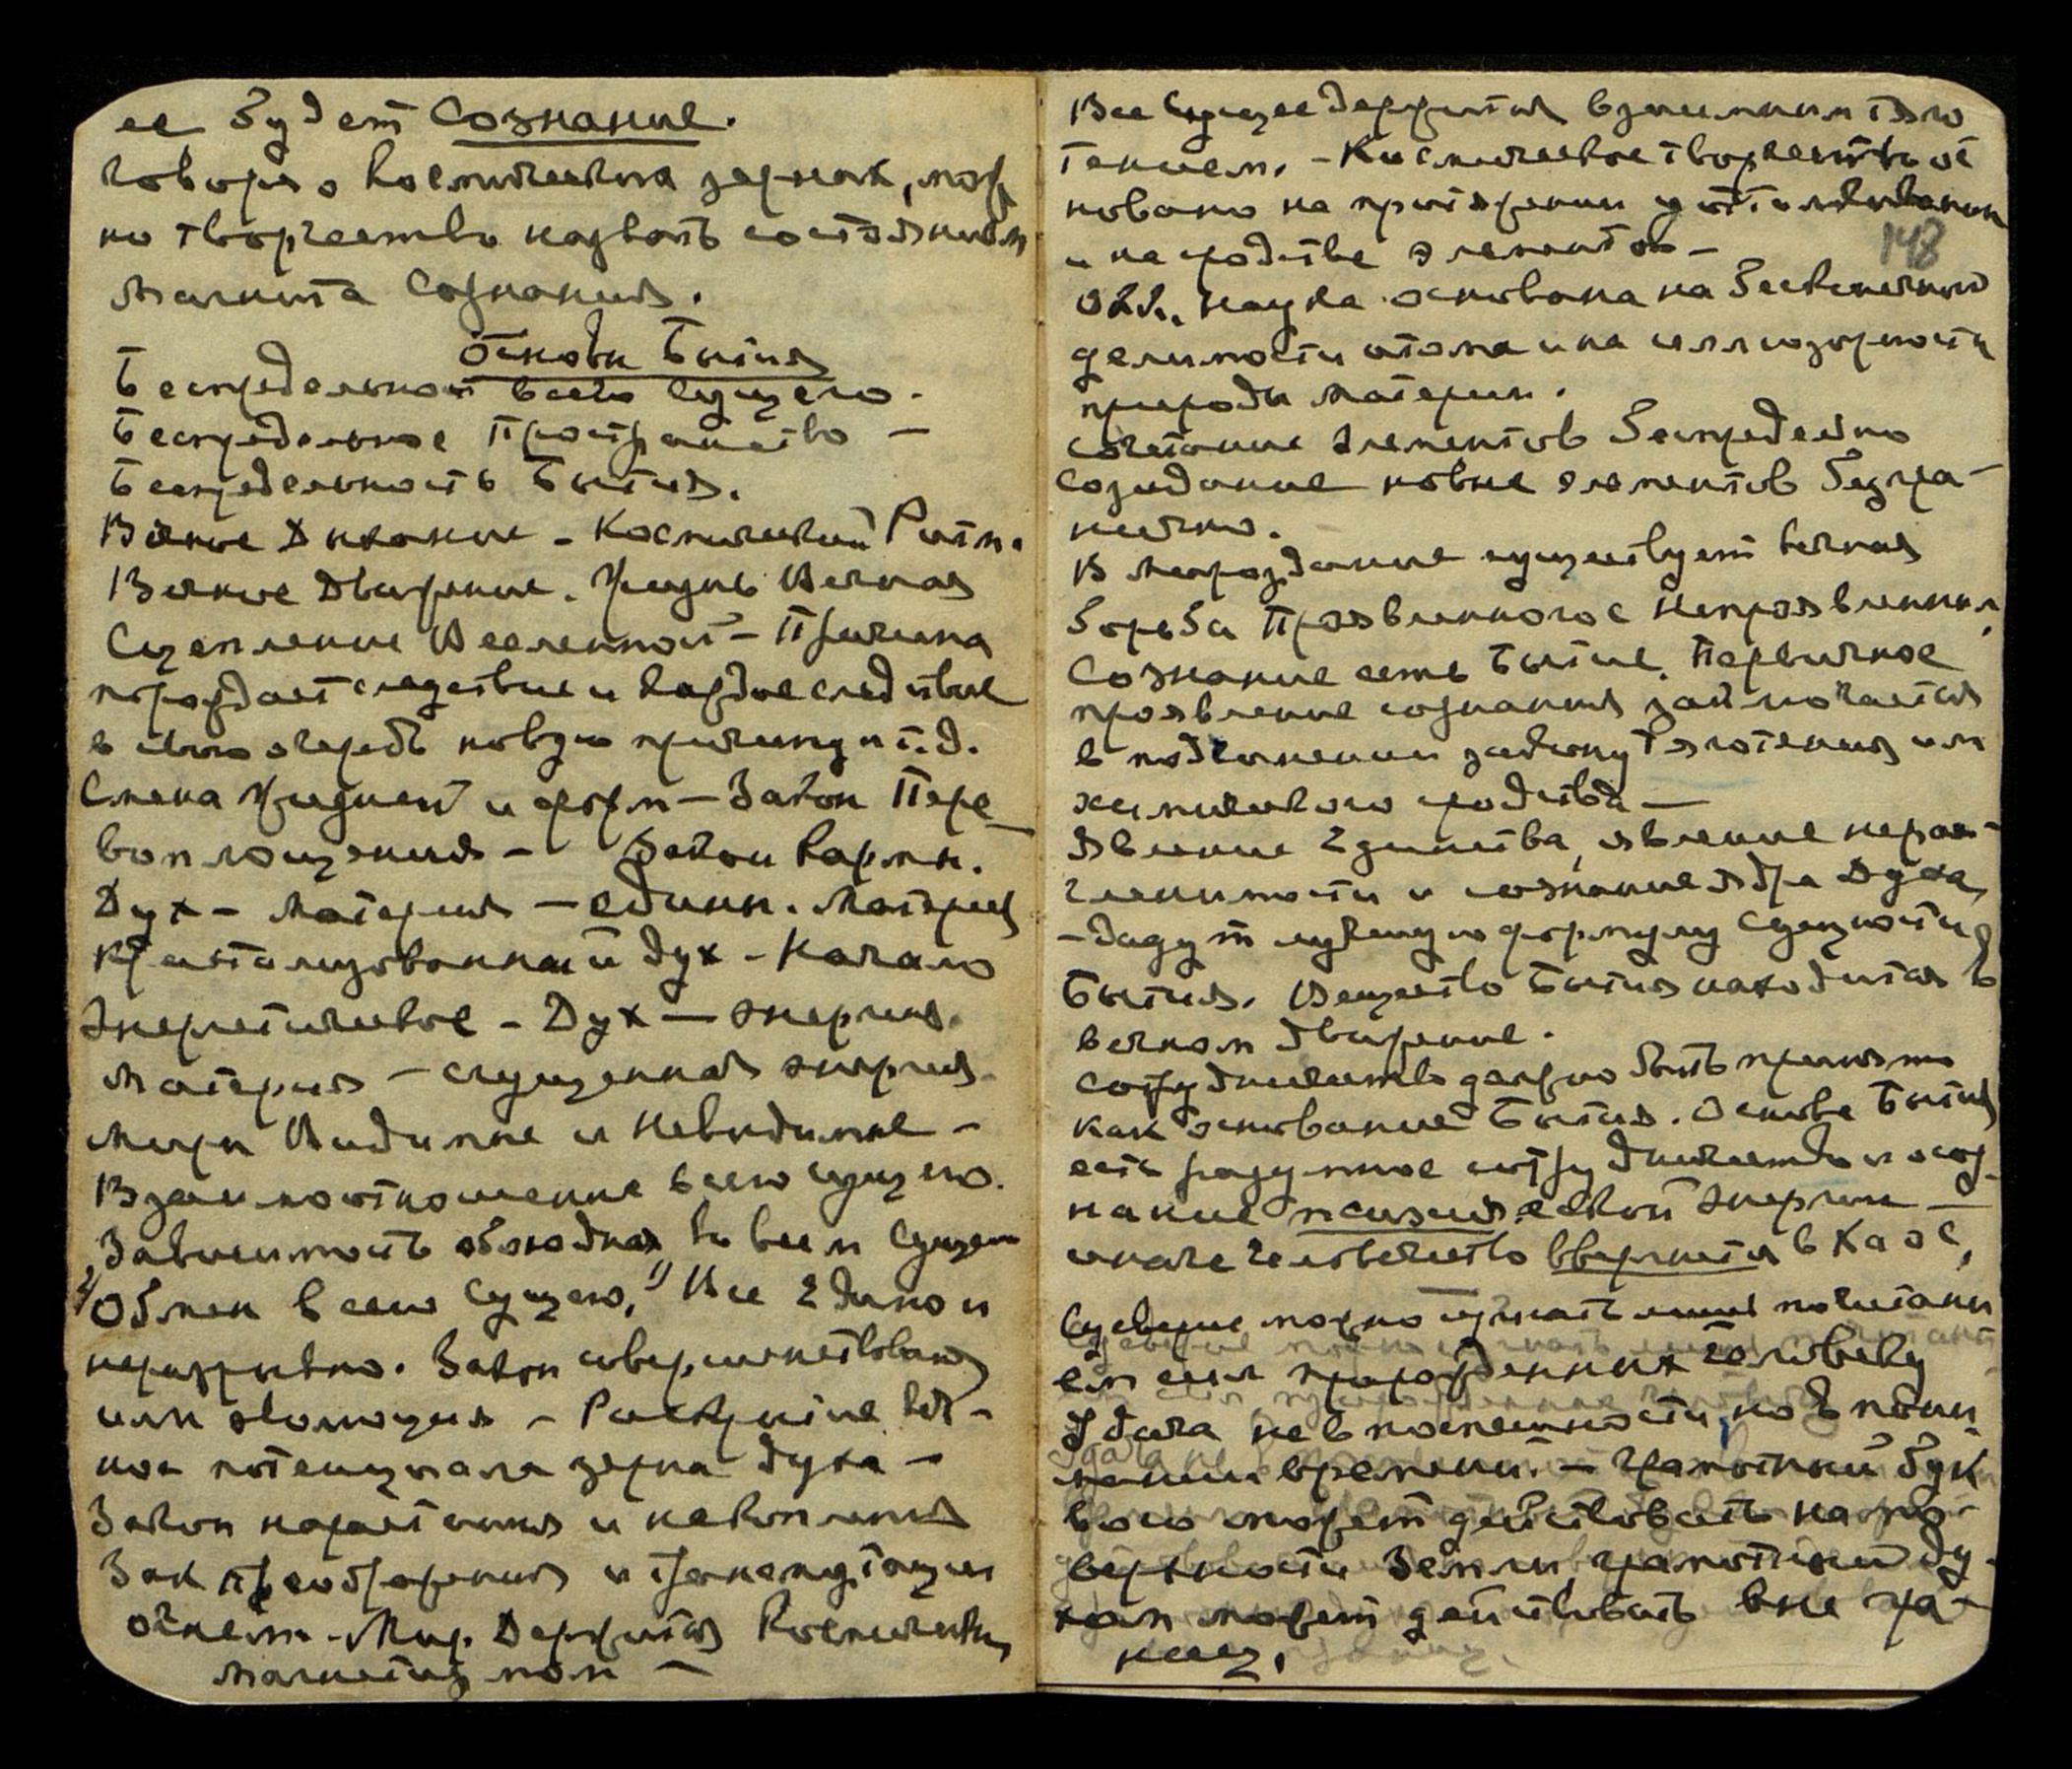 ее будет Сознание.
Говоря о Космических зернах, мож
но творчество назвать состоянием
магнита Сознания.
Основы Бытия
Беспредельность всего Сущего.
Беспредельное Пространство —
Беспредельность Бытия.
Вечное Дыхание - Космический Ритм.
Вечное Движение. Жизнь Вечная
Сцепление Вселенной - Причина
порождает следствие и каждое следствие
в свою очередь новую причину и т.д.
Смена Жизней и форм - Закон Пере
воплощения - Закон Кармы.
Дух - Материя - едины. Материя
кристализованный дух - Начало
Энергетическое - Дух - энергия.
Материя - сгущенная энергия.
Миры Видимые и Невидимые -
Взаимоотношение всего сущего.
Зависимость обоюдная во всем Сущем
2/ Обмен всего Сущего, 1/ Все Едино и
неразрывно. Закон совершенствования
или эволюция - Раскрытие
потенциала зерна духа -
Закон нарастания и накопления
Зак преображения и трансмутации
огнем - Мир Держится Космическим
магнетизмом -
Все Сущее держится взаимным тяго
тением. - Космическое творчество ос
новано на притяжении и отталкивании
и на сродстве элементов -
148
Окк. наука основана на бесконечной
делимости атома и на иллюзорности
природы материи.
Сочетание элементов беспредельно
созидание новых элементов безгра-
нично.
В Мироздание существует вечная
борьба Проявленного с Непроявленным,
Сознание есть Бытие. Первичное
проявление сознания заключается
в подчинении закону тяготения или
химического сродства —
Явление Единства, явление нерас-
членимости и сознание ядра Духа,
- дадут лучшую формулу Сущности
Бытия. Вещество Бытия находится в
вечном движение.
Сотрудничество должно быть принято
как основание Бытия. Основа Бытия
есть разумное сотрудничество и осоз
нание психической энергии —
иначе человечество ввергнется в Хаос,
Суеверие можно изгнать лишь почитани
ем сил прирожденных человеку
Удача не в поспешности, но в пони
мании времени. - Грамотный бук
вою может действовать на по-
верхности Земли, грамотный ду-
хом может действовать вне гра-
ниц.